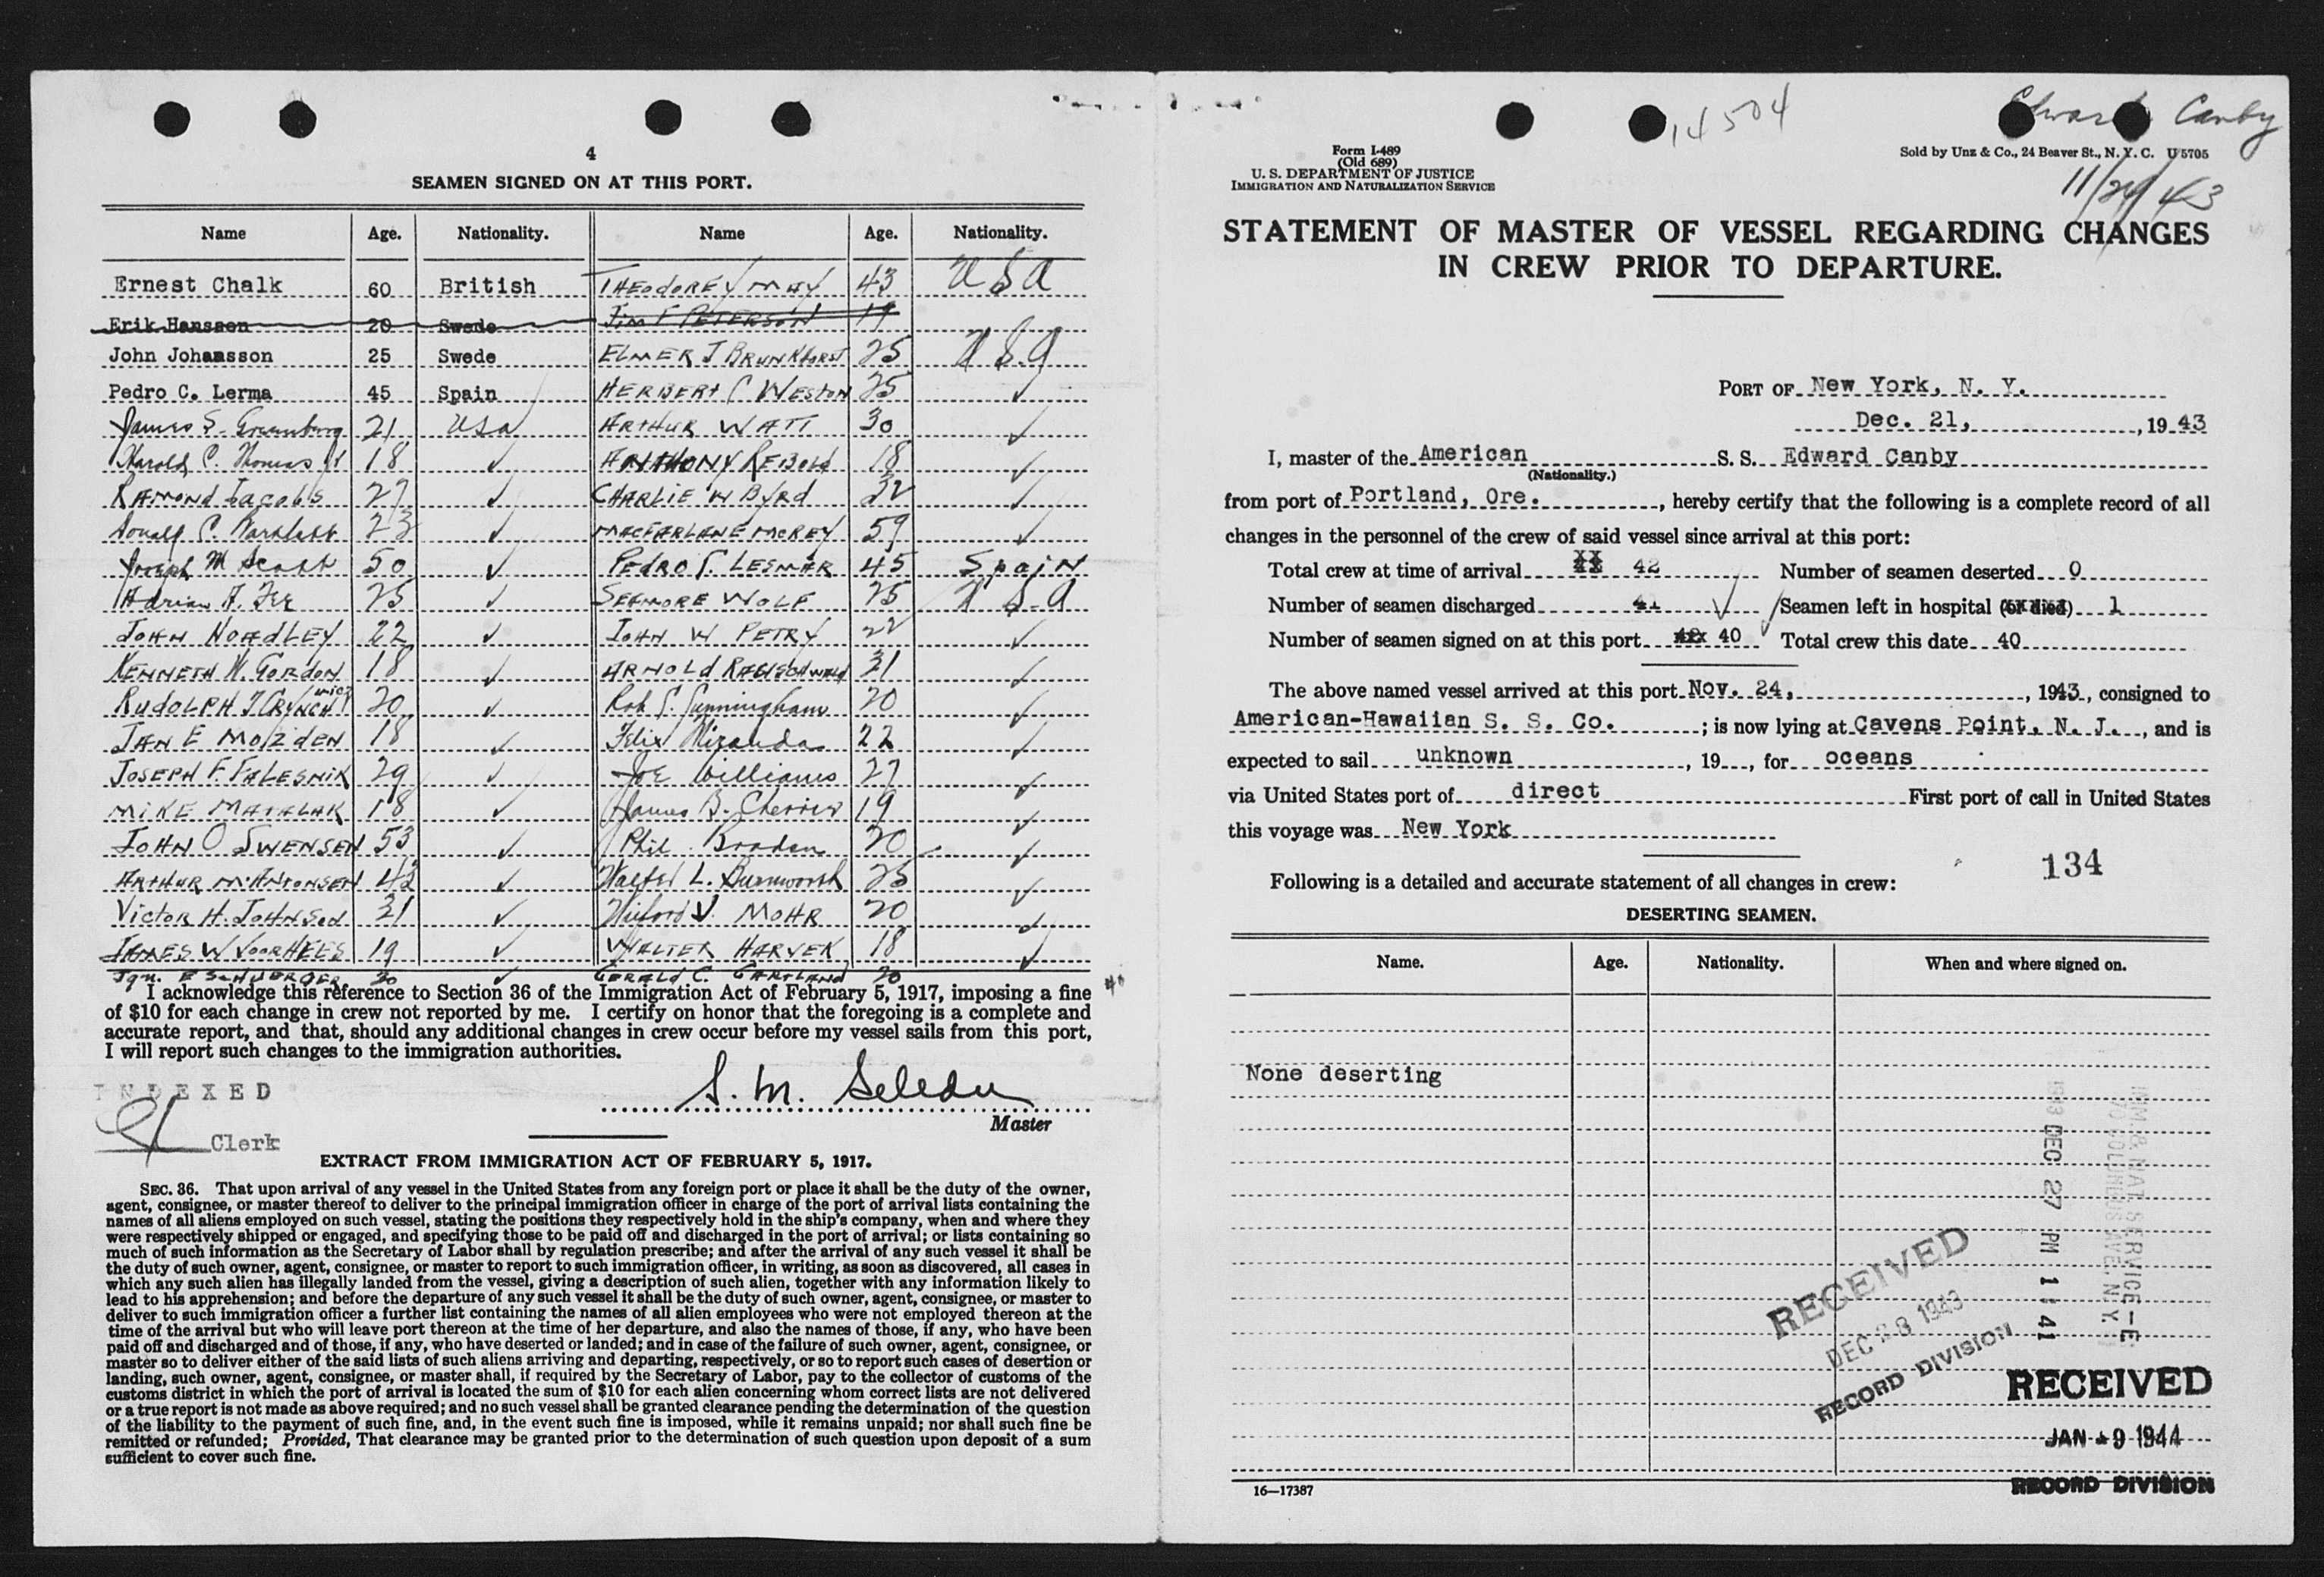 4
SEAMEN SIGNED ON AT THIS PORT.
Name Age. Nationality. Name Age. Nationality.
Ernest Chalk 60 British THEODORE Y MAY 43 USA
Erik Hanssen 20 Swede JIM F PETERSON 19
John Johansson 25 Swede ELMER J BRUNKHORST 25 USA
Pedro C. Lerma 45 Spain HERBERT C WESTON 25 ✓
James S. Greenberg 21 USA ARTHUR WATT 30 ✓
Harold C. Thomas Jr 18 ✓ ANTHONY REIBOLD 18 ✓
RAMOND Jacobs 27 ✓ CHARLIE W Byrd 32 ✓
23 ✓ MACFARLANE MCREY 59 ✓
Joseph M Scott 50 ✓ PEDRO P. LESMAR 45 SpaiN
Adrian A. 25 ✓ SEEMORE WOLF 25 USA
JOHN HOADLEY 22 ✓ JOHN W PETRY 22 ✓
KENNETH W. GORDON 18 ✓ ARNOLD 21 ✓
RUDOLPH J 20 ✓ Rob S. Cunningham 20 ✓
JAN E MOIZDEN 18 ✓ Felix Miranda 22 ✓
JOSEPH F. FALESNIK 29 ✓ JOE Williams 27 ✓
MIKE MATALAK 18 ✓ James B. Cherrier 19 ✓
JOHN O SWENSEN 53 ✓ Phil Braden 20 ✓
ARTHUR M. ANTONSEN 42 ✓ Walter L. Burnworth 25 ✓
Victor H. JOHNSON 21 ✓ Wilford V. MOHR 20 ✓
JAMES W VOORHEES 19 ✓ WALTER HARVEK 18 ✓
E SCHUERGER 20 ✓ GERALD C. GARTLAND 20
I acknowledge this reference to Section 36 of the Immigration Act of February 5, 1917, imposing a fine
of $10 for each change in crew not reported by me. I certify on honor that the foregoing is a complete and
accurate report, and that, should any additional changes in crew occur before my vessel sails from this port,
I will report such changes to the immigration authorities.
INDEXED
S. M.
Master
Clerk
EXTRACT FROM IMMIGRATION ACT OF FEBRUARY 5, 1917.
SEC. 36. That upon arrival of any vessel in the United States from any foreign port or place it shall be the duty of the owner,
agent, consignee, or master thereof to deliver to the principal immigration officer in charge of the port of arrival lists containing the
names of all aliens employed on such vessel, stating the positions they respectively hold in the ship's company, when and where they
were respectively shipped or engaged, and specifying those to be paid off and discharged in the port of arrival; or lists containing so
much of such information as the Secretary of Labor shall by regulation prescribe; and after the arrival of any such vessel it shall be
the duty of such owner, agent, consignee, or master to report to such immigration officer, in writing, as soon as discovered, all cases in
which any such alien has illegally landed from the vessel, giving a description of such alien, together with any information likely to
lead to his apprehension; and before the departure of any such vessel it shall be the duty of such owner, agent, consignee, or master to
deliver to such immigration officer a further list containing the names of all alien employees who were not employed thereon at the
time of the arrival but who will leave port thereon at the time of her departure, and also the names of those, if any, who have been
paid off and discharged and of those, if any, who have deserted or landed; and in case of the failure of such owner, agent, consignee, or
master so to deliver either of the said lists of such aliens arriving and departing, respectively, or so to report such cases of desertion or
landing, such owner, agent, consignee, or master shall, if required by the Secretary of Labor, pay to the collector of customs of the
customs district in which the port of arrival is located the sum of $10 for each alien concerning whom correct lists are not delivered
or a true report is not made as above required; and no such vessel shall be granted clearance pending the determination of the question
of the liability to the payment of such fine, and, in the event such fine is imposed, while it remains unpaid; nor shall such fine be
remitted or refunded; Provided, That clearance may be granted prior to the determination of such question upon deposit of a sum
sufficient to cover such fine.
14504
Edward Canby
11/24/43
Form I-489
(Old 689)
U. S. DEPARTMENT OF JUSTICE
IMMIGRATION AND NATURALIZATION SERVICE
Sold by Unz & Co., 24 Beaver St., N. Y. C. U 5705
STATEMENT OF MASTER OF VESSEL REGARDING CHANGES
IN CREW PRIOR TO DEPARTURE.
PORT OF New York, N. Y.
Dec. 21, , 19 43
I, master of the American S. S. Edward Canby
(Nationality.)
from port of Portland, Ore. , hereby certify that the following is a complete record of all
changes in the personnel of the crew of said vessel since arrival at this port:
Total crew at time of arrival 42 Number of seamen deserted 0
Number of seamen discharged 41 ✓ Seamen left in hospital (or died) 1
Number of seamen signed on at this port 40 ✓ Total crew this date 40
The above named vessel arrived at this port Nov. 24, , 1943, consigned to
American-Hawaiian S. S. Co. ; is now lying at Cavens Point, N. J. , and is
expected to sail unknown , 19 , for oceans
via United States port of direct First port of call in United States
this voyage was New York
134
Following is a detailed and accurate statement of all changes in crew:
DESERTING SEAMEN.
Name. Age. Nationality. When and where signed on.
None deserting
IMM. & NAT. SERVICE-E
70 COLUMBUS AVE. N.Y.
1943 DEC 27 PM 1 41
RECEIVED
DEC 28 1943
RECORD DIVISION
RECEIVED
JAN 19 1944
RECORD DIVISION
16—17387